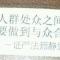 人群处众之间
要做到与众合
——证严法师静